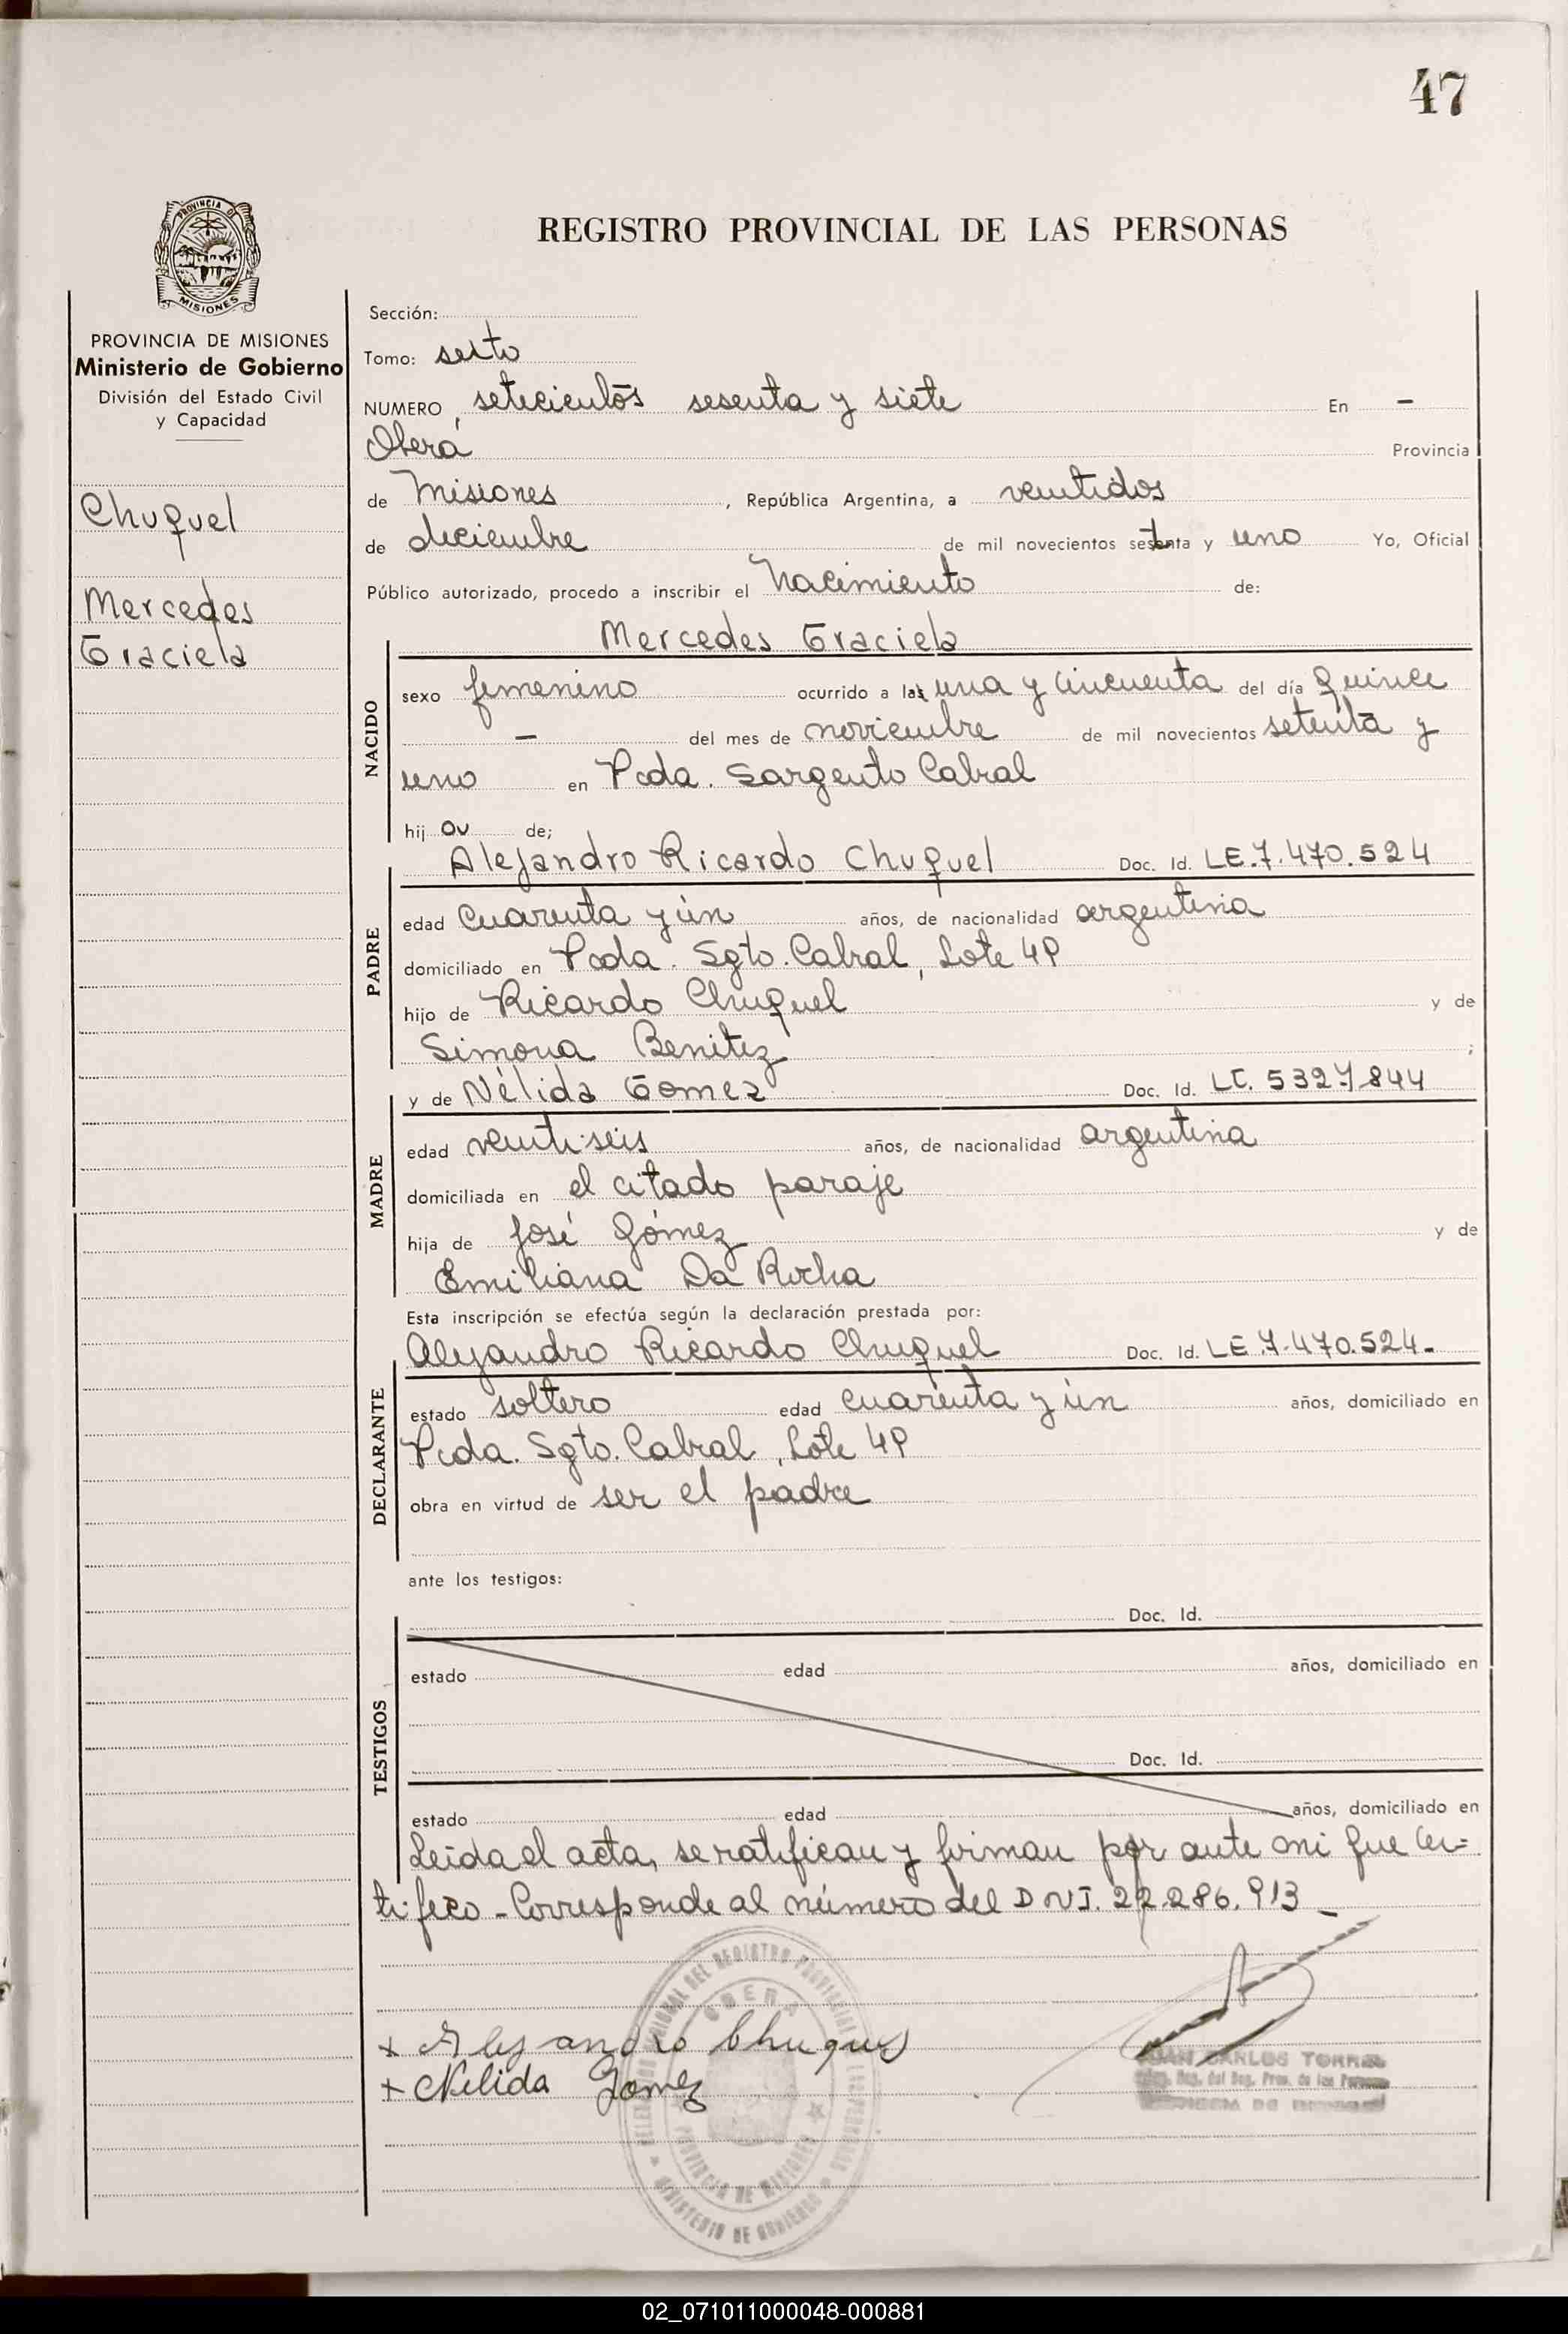 47
PROVINCIA DE
MISIONES
REGISTRO PROVINCIAL DE LAS PERSONAS
PROVINCIA DE MISIONES
Ministerio de Gobierno
División del Estado Civil
y Capacidad
Chuquel
Mercedes
Graciela
Sección:
Tomo: sexto
NUMERO setecientos sesenta y siete En -
Oberá Provincia
de Misiones, República Argentina, a ventidos
de diciembre de mil novecientos setenta y uno Yo, Oficial
Público autorizado, procedo a inscribir el Nacimiento de:
Mercedes Graciela
NACIDO
sexo femenino ocurrido a las una y cincuenta del día quince
- del mes de noviembre de mil novecientos setenta y
uno en Pcda. Sargento Cabral
hij de;
PADRE
Alejandro Ricardo Chuquel Doc. Id. LE.7.470.524
edad cuarenta y ún años, de nacionalidad argentina
domiciliado en Pcda. Sgto. Cabral, Lote 49
hijo de Ricardo Chuquel y de
Simona Benitez ;
MADRE
y de Nélida Gomez Doc. Id. LC. 5327.844
edad ventiseis años, de nacionalidad argentina
domiciliada en el citado paraje
hija de José Gómez y de
Emiliana Da Rocha
Esta inscripción se efectúa según la declaración prestada por:
DECLARANTE
Alejandro Ricardo Chuquel Doc. Id. LE.7.470.524.-
estado soltero edad cuarenta y ún años, domiciliado en
Pcda. Sgto. Cabral, Lote 49
obra en virtud de ser el padre
ante los testigos:
TESTIGOS
Doc. Id.
estado edad años, domiciliado en
Doc. Id.
estado edad años, domiciliado en
Leida el acta, se ratifican y firman por ante mi que cer=
tifico - Corresponde al número del DNI. 22.286.913 -
+ Alejandro Chuquel
+ Nelida Gomez
JUAN CARLOS TORRES
del Reg. Prov. de las Personas
OBERA
PROVINCIA DE MISIONES
MINISTERIO DE GOBIERNO
02_071011000048-000881